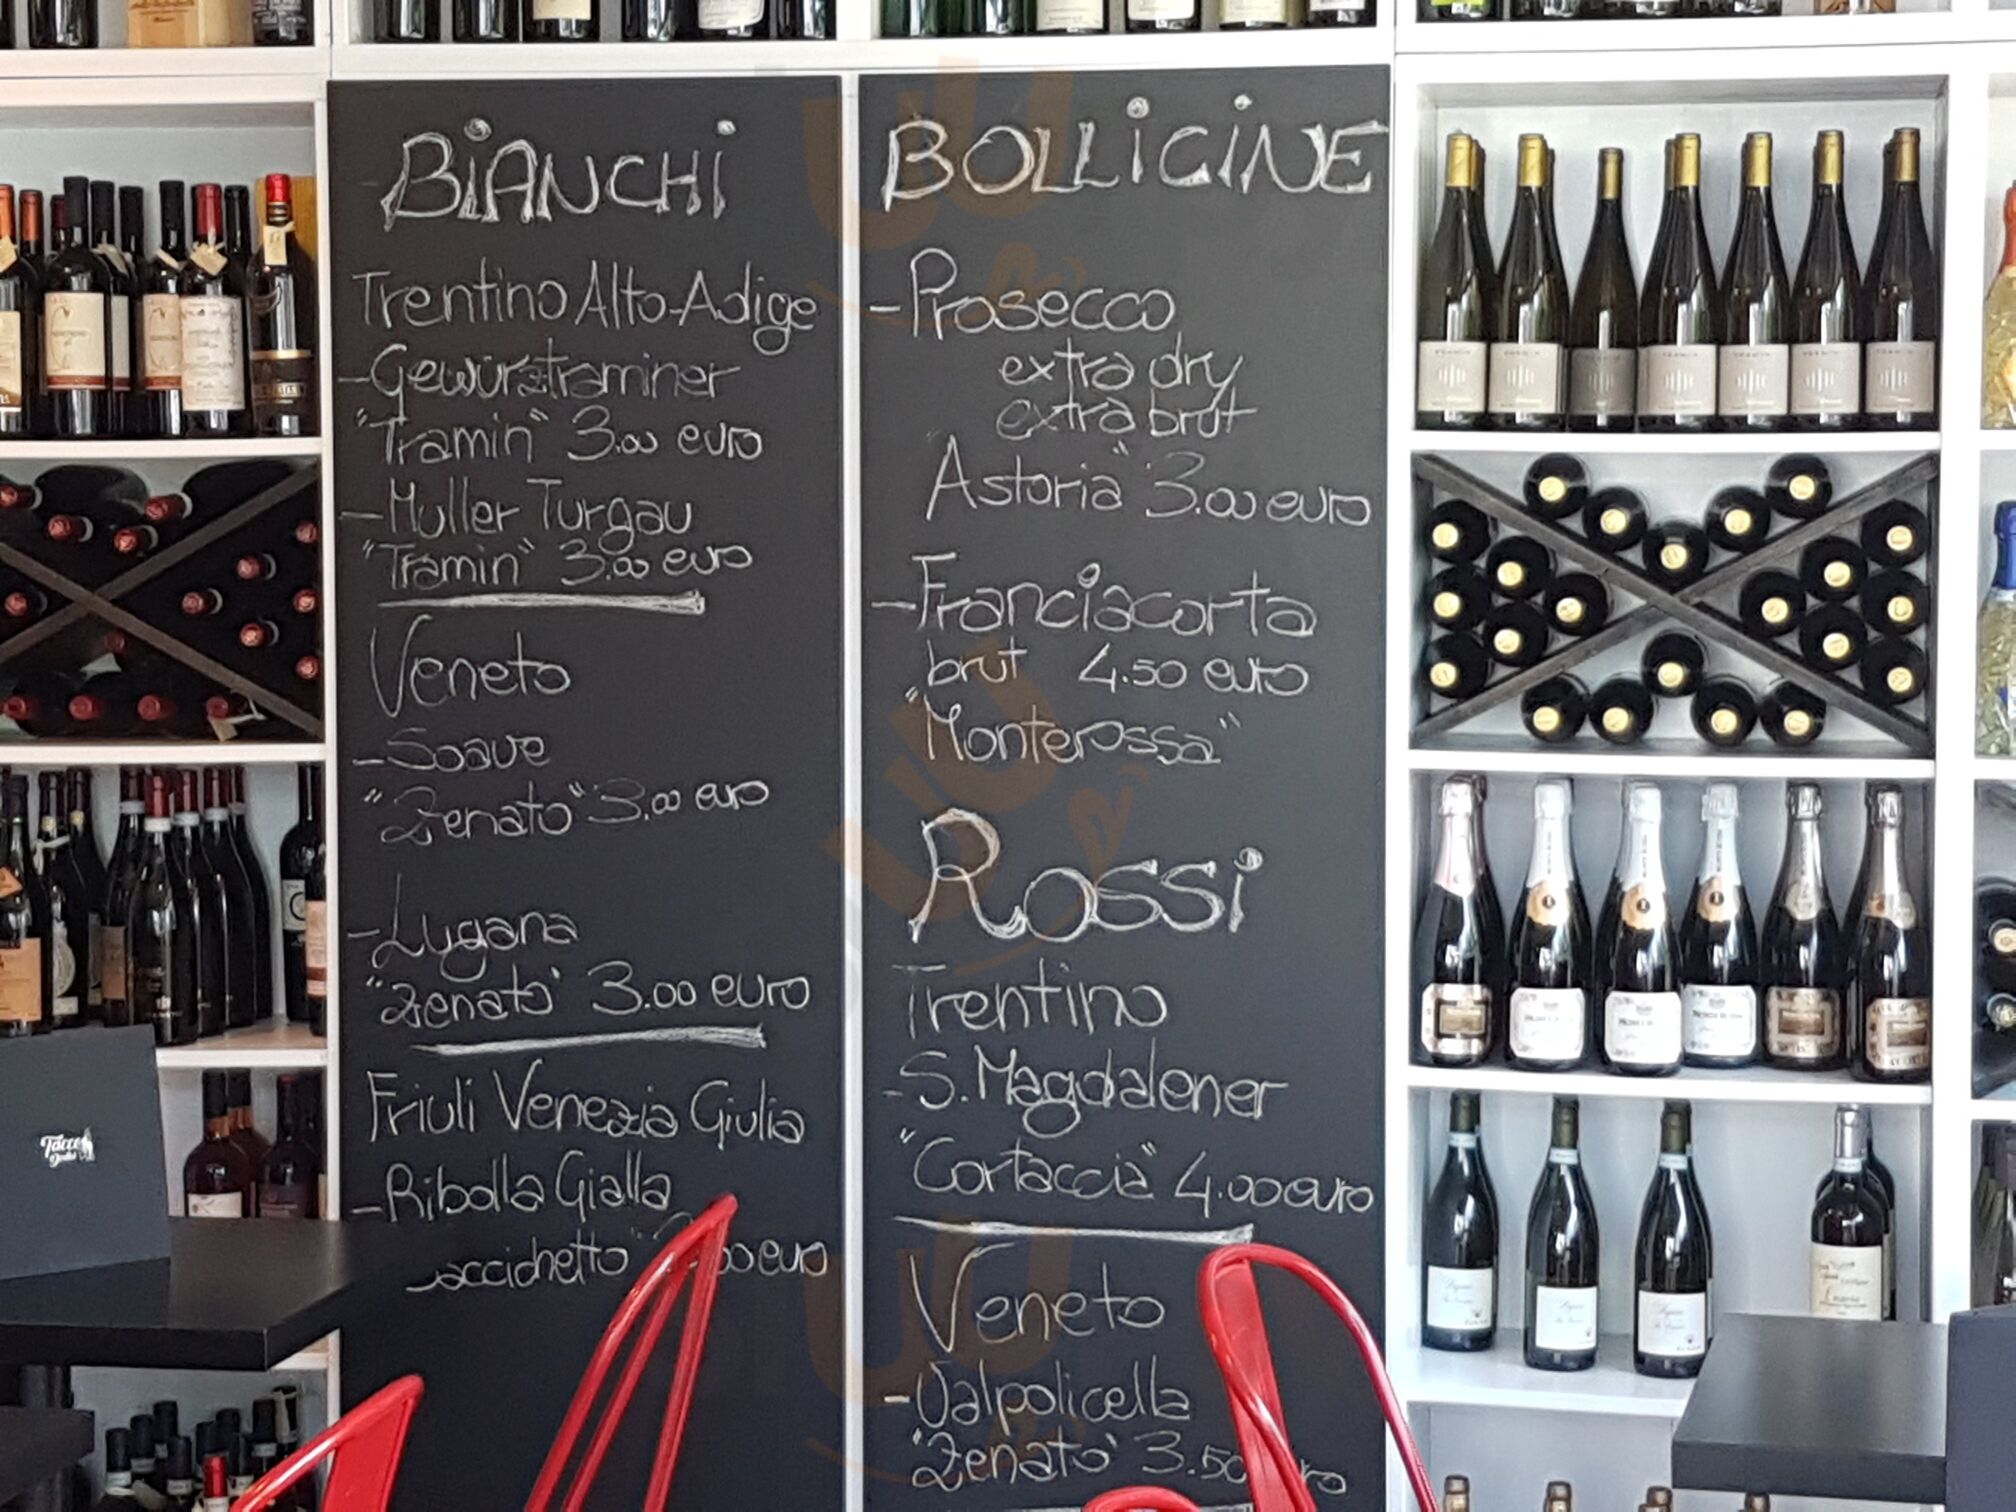 BiANCHi
Trentino Alto-Adige
-Gewürztraminer
"Tramin" 3.00 euro
-Muller Turgau
"Tramin" 3.00 euro
Veneto
-Soave
"Zenato" 3.00 euro
-Lugana
"Zenato" 3.00 euro
Friuli Venezia Giulia
-Ribolla Gialla
00 euro
BOLLiCiNE
-Prosecco
extra dry
extra brut
"Astoria" 3.00 euro
-Franciacorta
brut 4.50 euro
"Monterossa"
Rossi
Trentino
-S. Magdalener
"Cortaccia" 4.00 euro
Veneto
-Valpolicella
"Zenato" 3.50
TRAMIN
TRAMIN
TRAMIN
TRAMIN
TRAMIN
TRAMIN
TRAMIN